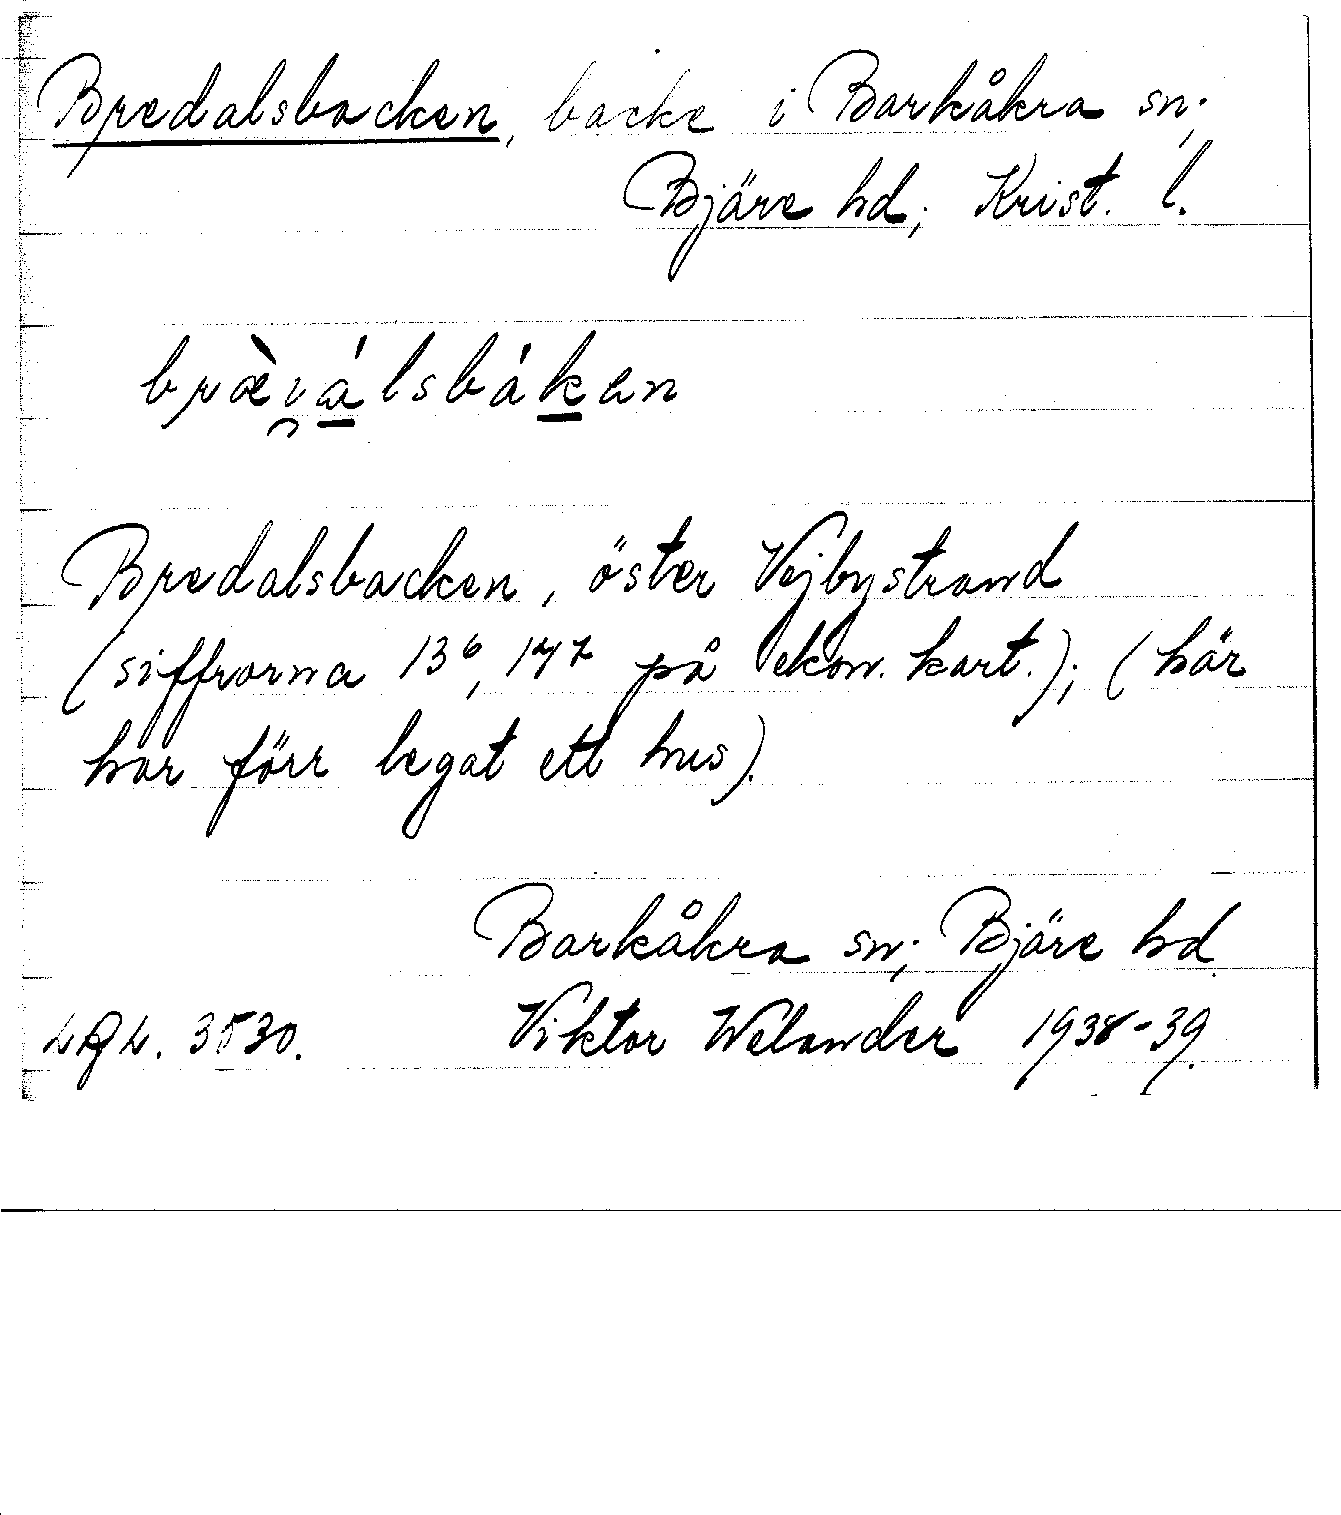 Bredalsbacken, backe i Barkåkra sn;
Bjäre hd; Krist. l.
bræ̀i̯álsbáken
Bredalsbacken, öster Vejbystrand
(siffrorna 13⁶, 14⁷ på ekon. kart.); (här
har förr legat ett hus).
Barkåkra sn; Bjäre hd
3530. Viktor Welander 1938-39.